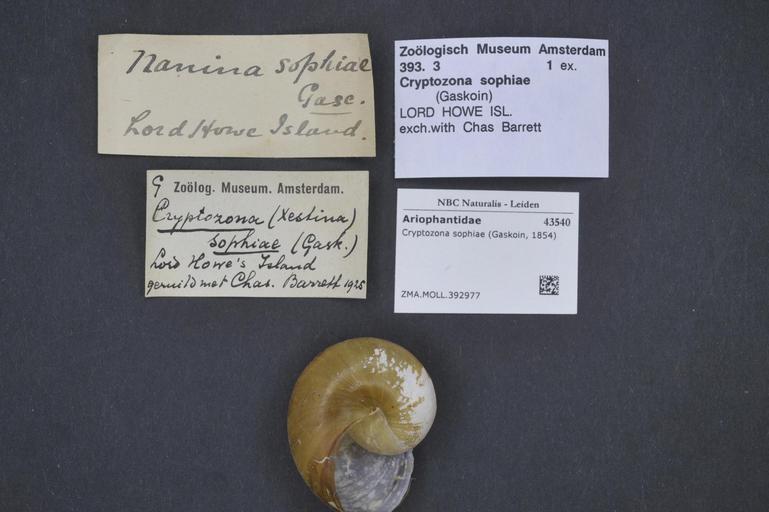 Nanina sophiae
Gasc.
Lord Howe Island.
Zoölogisch Museum Amsterdam
393. 3 1 ex.
Cryptozona sophiae
(Gaskoin)
LORD HOWE ISL.
exch.with Chas Barrett
G Zoölog. Museum. Amsterdam.
Cryptozona (Xestina)
sophiae (Gask.)
Lord Howe's Island
geruild met Chas. Barrett 1925
NBC Naturalis - Leiden
Ariophantidae 43540
Cryptozona sophiae (Gaskoin, 1854)
ZMA.MOLL.392977